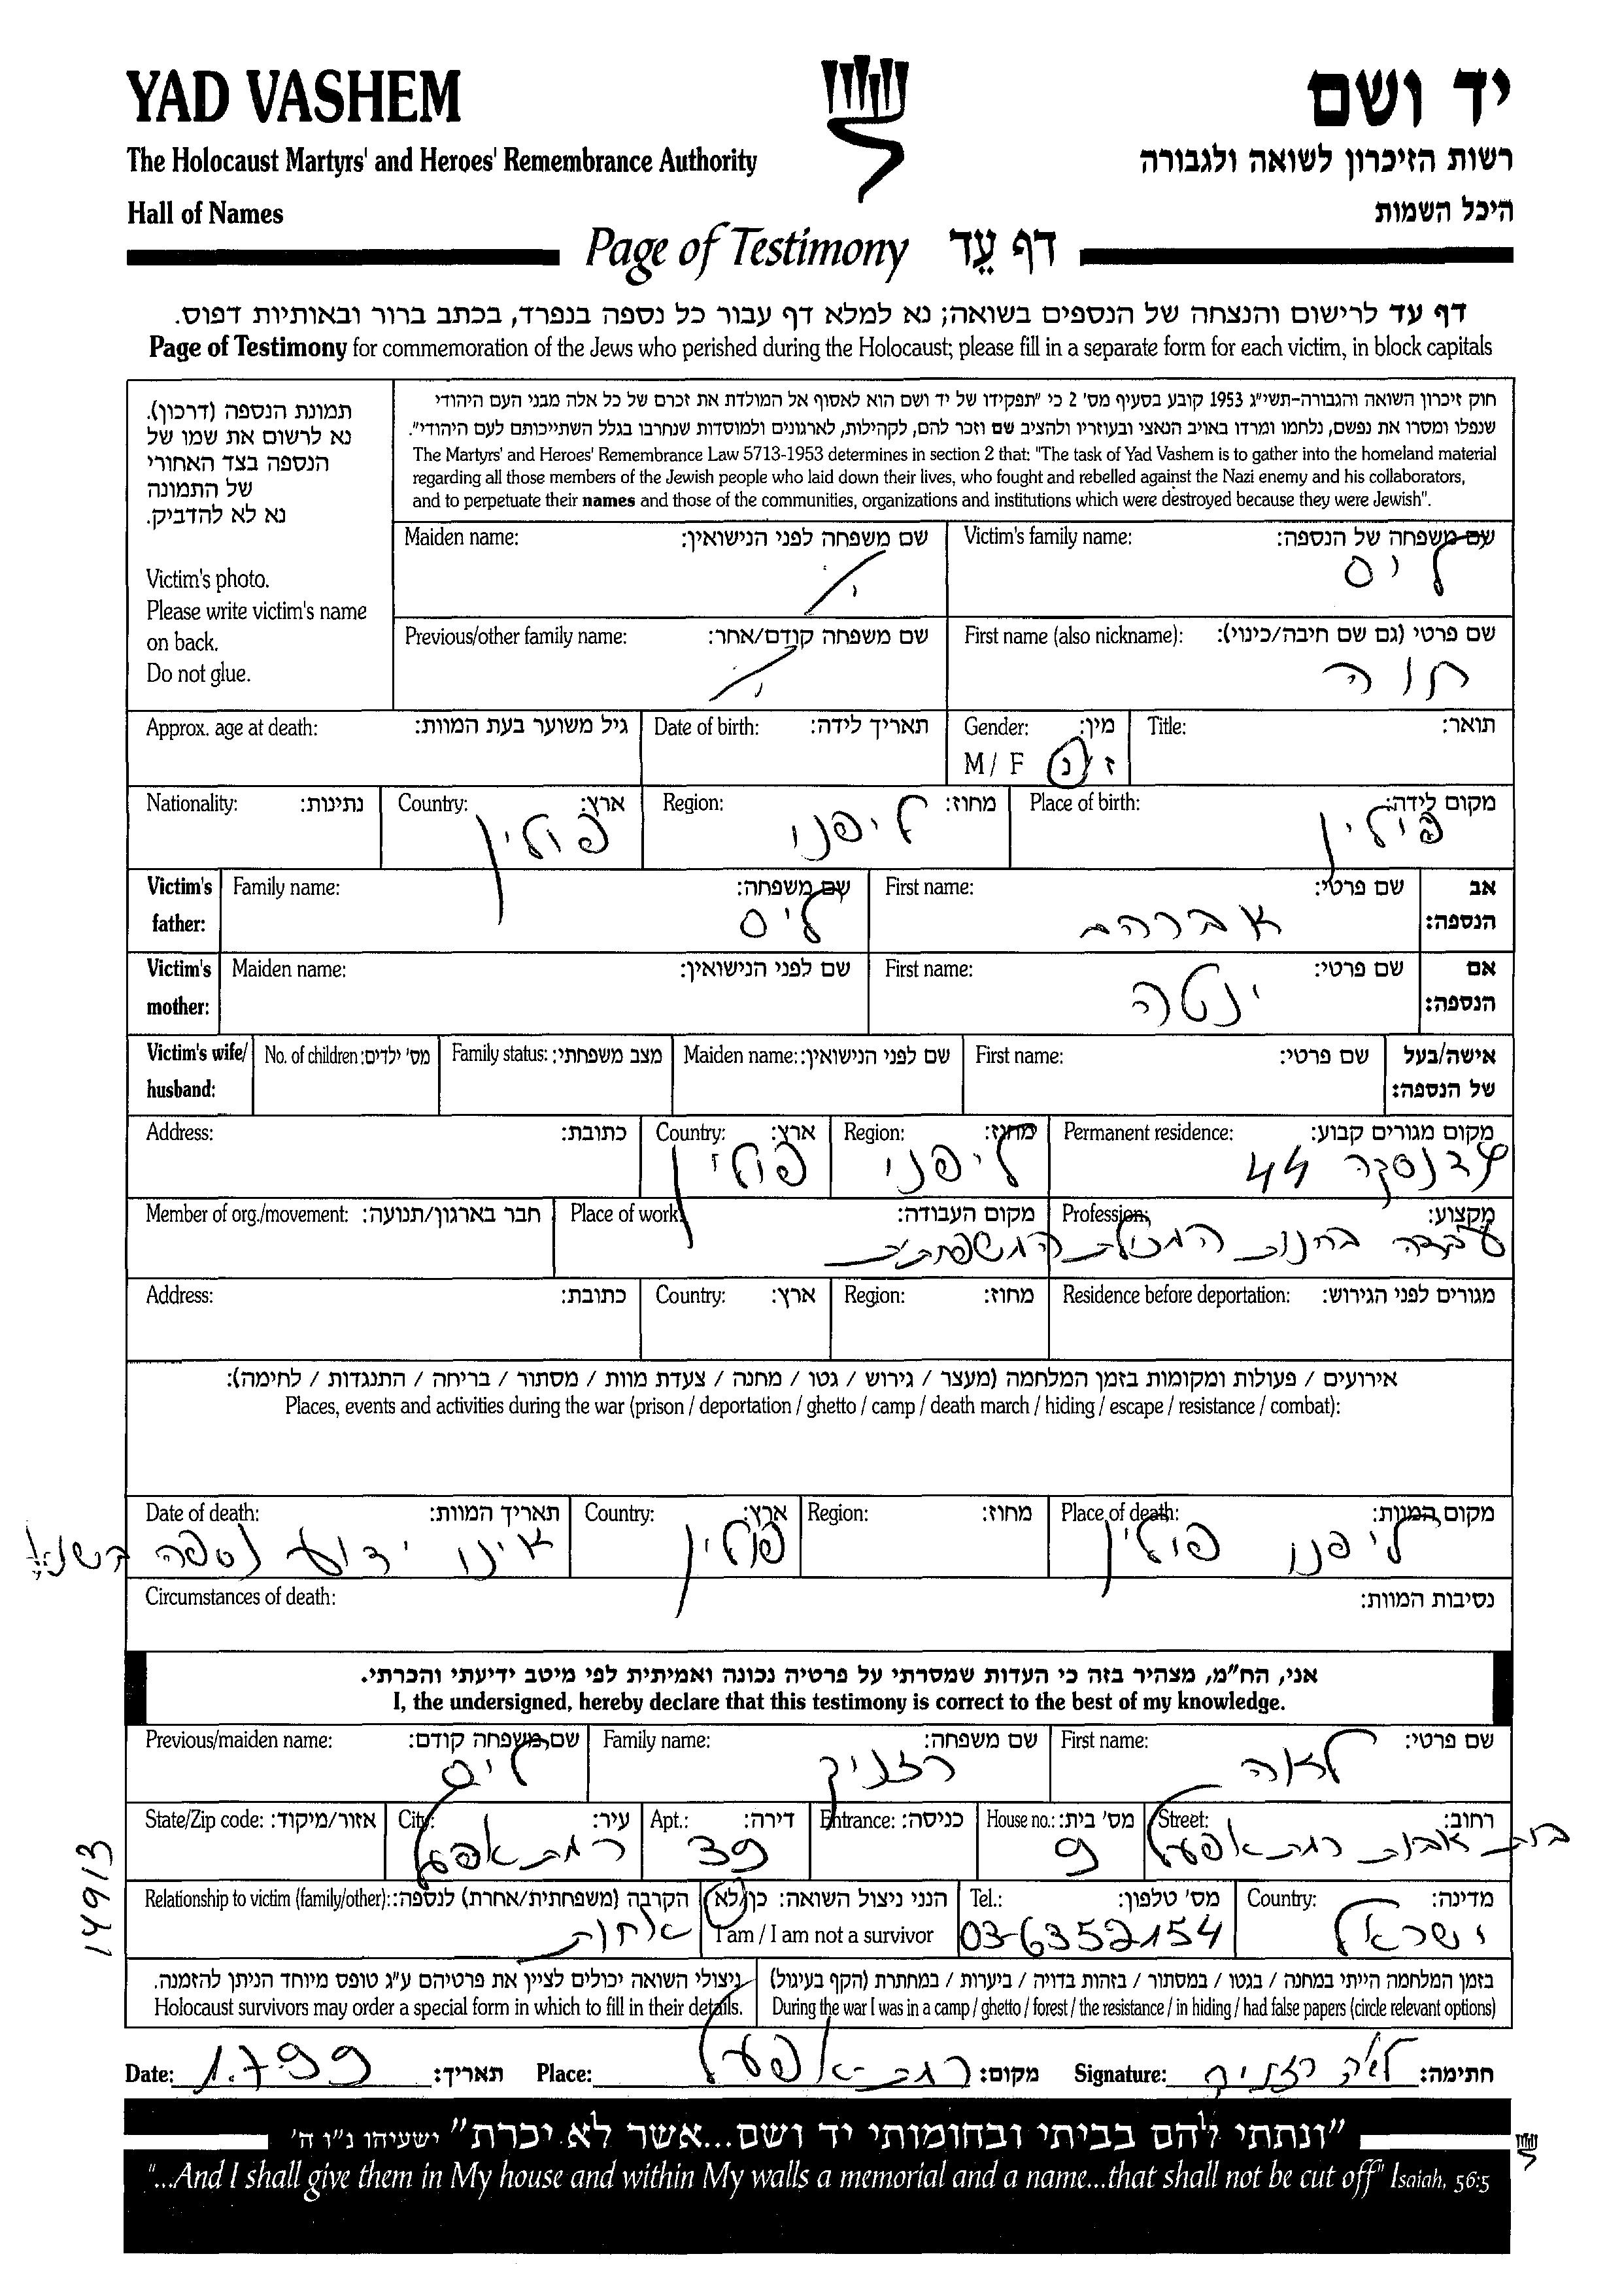 YAD VASHEM
יד ושם
The Holocaust Martyrs' and Heroes' Remembrance Authority
רשות הזיכרון לשואה ולגבורה
Hall of Names
היכל השמות
Page of Testimony דף עֵד
דף עד לרישום והנצחה של הנספים בשואה; נא למלא דף עבור כל נספה בנפרד, בכתב ברור ובאותיות דפוס.
Page of Testimony for commemoration of the Jews who perished during the Holocaust; please fill in a separate form for each victim, in block capitals
תמונת הנספה (דרכון).
נא לרשום את שמו של
הנספה בצד האחורי
של התמונה
נא לא להדביק.
Victim's photo.
Please write victim's name
on back.
Do not glue.
חוק זיכרון השואה והגבורה-תשי"ג 1953 קובע בסעיף מס' 2 כי "תפקידו של יד ושם הוא לאסוף אל המולדת את זכרם של כל אלה מבני העם היהודי
שנפלו ומסרו את נפשם, נלחמו ומרדו באויב הנאצי ובעוזריו ולהציב שם וזכר להם, לקהילות, לארגונים ולמוסדות שנחרבו בגלל השתייכותם לעם היהודי".
The Martyrs' and Heroes' Remembrance Law 5713-1953 determines in section 2 that: "The task of Yad Vashem is to gather into the homeland material
regarding all those members of the Jewish people who laid down their lives, who fought and rebelled against the Nazi enemy and his collaborators,
and to perpetuate their names and those of the communities, organizations and institutions which were destroyed because they were Jewish".
Victim's family name: שם משפחה של הנספה:
ליס
Maiden name: שם משפחה לפני הנישואין:
First name (also nickname): שם פרטי (גם שם חיבה/כינוי):
חוה
Previous/other family name: שם משפחה קודם/אחר:
Title: תואר:
Gender: מין:
M / F ז / נ
Date of birth: תאריך לידה:
Approx. age at death: גיל משוער בעת המוות:
Place of birth: מקום לידה:
פולין
Region: מחוז:
ליפנו
Country: ארץ:
פולין
Nationality: נתינות:
Victim's father: אב הנספה:
First name: שם פרטי:
אברהם
Family name: שם משפחה:
ליס
Victim's mother: אם הנספה:
First name: שם פרטי:
ינטה
Maiden name: שם לפני הנישואין:
Victim's wife/ husband: אישה/בעל של הנספה:
First name: שם פרטי:
Maiden name: שם לפני הנישואין:
Family status: מצב משפחתי:
No. of children: מס' ילדים:
Permanent residence: מקום מגורים קבוע:
44
Region: מחוז:
ליפנו
Country: ארץ:
פולין
Address: כתובת:
Profession: מקצוע:
עבדה בחנות המכולת המשפחתית
Place of work: מקום העבודה:
Member of org./movement: חבר בארגון/תנועה:
Residence before deportation: מגורים לפני הגירוש:
Region: מחוז:
Country: ארץ:
Address: כתובת:
אירועים / פעולות ומקומות בזמן המלחמה (מעצר / גירוש / גטו / מחנה / צעדת מוות / מסתור / בריחה / התנגדות / לחימה):
Places, events and activities during the war (prison / deportation / ghetto / camp / death march / hiding / escape / resistance / combat):
Place of death: מקום המוות:
ליפנו פולין
Region: מחוז:
Country: ארץ:
פולין
Date of death: תאריך המוות:
אינו ידוע נספה
Circumstances of death: נסיבות המוות:
אני, הח"מ, מצהיר בזה כי העדות שמסרתי על פרטיה נכונה ואמיתית לפי מיטב ידיעתי והכרתי.
I, the undersigned, hereby declare that this testimony is correct to the best of my knowledge.
First name: שם פרטי:
לאה
Family name: שם משפחה:
רזניק
Previous/maiden name: שם משפחה קודם:
ליס
Street: רחוב:
בית אבות רמת אפעל
House no.: מס' בית:
9
Entrance: כניסה:
Apt.: דירה:
39
City: עיר:
רמת אפעל
State/Zip code: אזור/מיקוד:
14913
Country: מדינה:
ישראל
Tel.: מס' טלפון:
03-6352154
הנני ניצול השואה: כן/לא
I am / I am not a survivor
Relationship to victim (family/other): הקרבה (משפחתית/אחרת) לנספה:
אחות
בזמן המלחמה הייתי במחנה / בגטו / במסתור / בזהות בדויה / ביערות / במחתרת (הקף בעיגול)
During the war I was in a camp / ghetto / forest / the resistance / in hiding / had false papers (circle relevant options)
ניצולי השואה יכולים לציין את פרטיהם ע"ג טופס מיוחד הניתן להזמנה.
Holocaust survivors may order a special form in which to fill in their details.
Signature: חתימה: לאה רזניק
Place: מקום: רמת אפעל
Date: תאריך: 1.7.99
"ונתתי להם בביתי ובחומותי יד ושם...אשר לא יכרת" ישעיהו נ"ו ה'
"...And I shall give them in My house and within My walls a memorial and a name...that shall not be cut off" Isaiah, 56:5